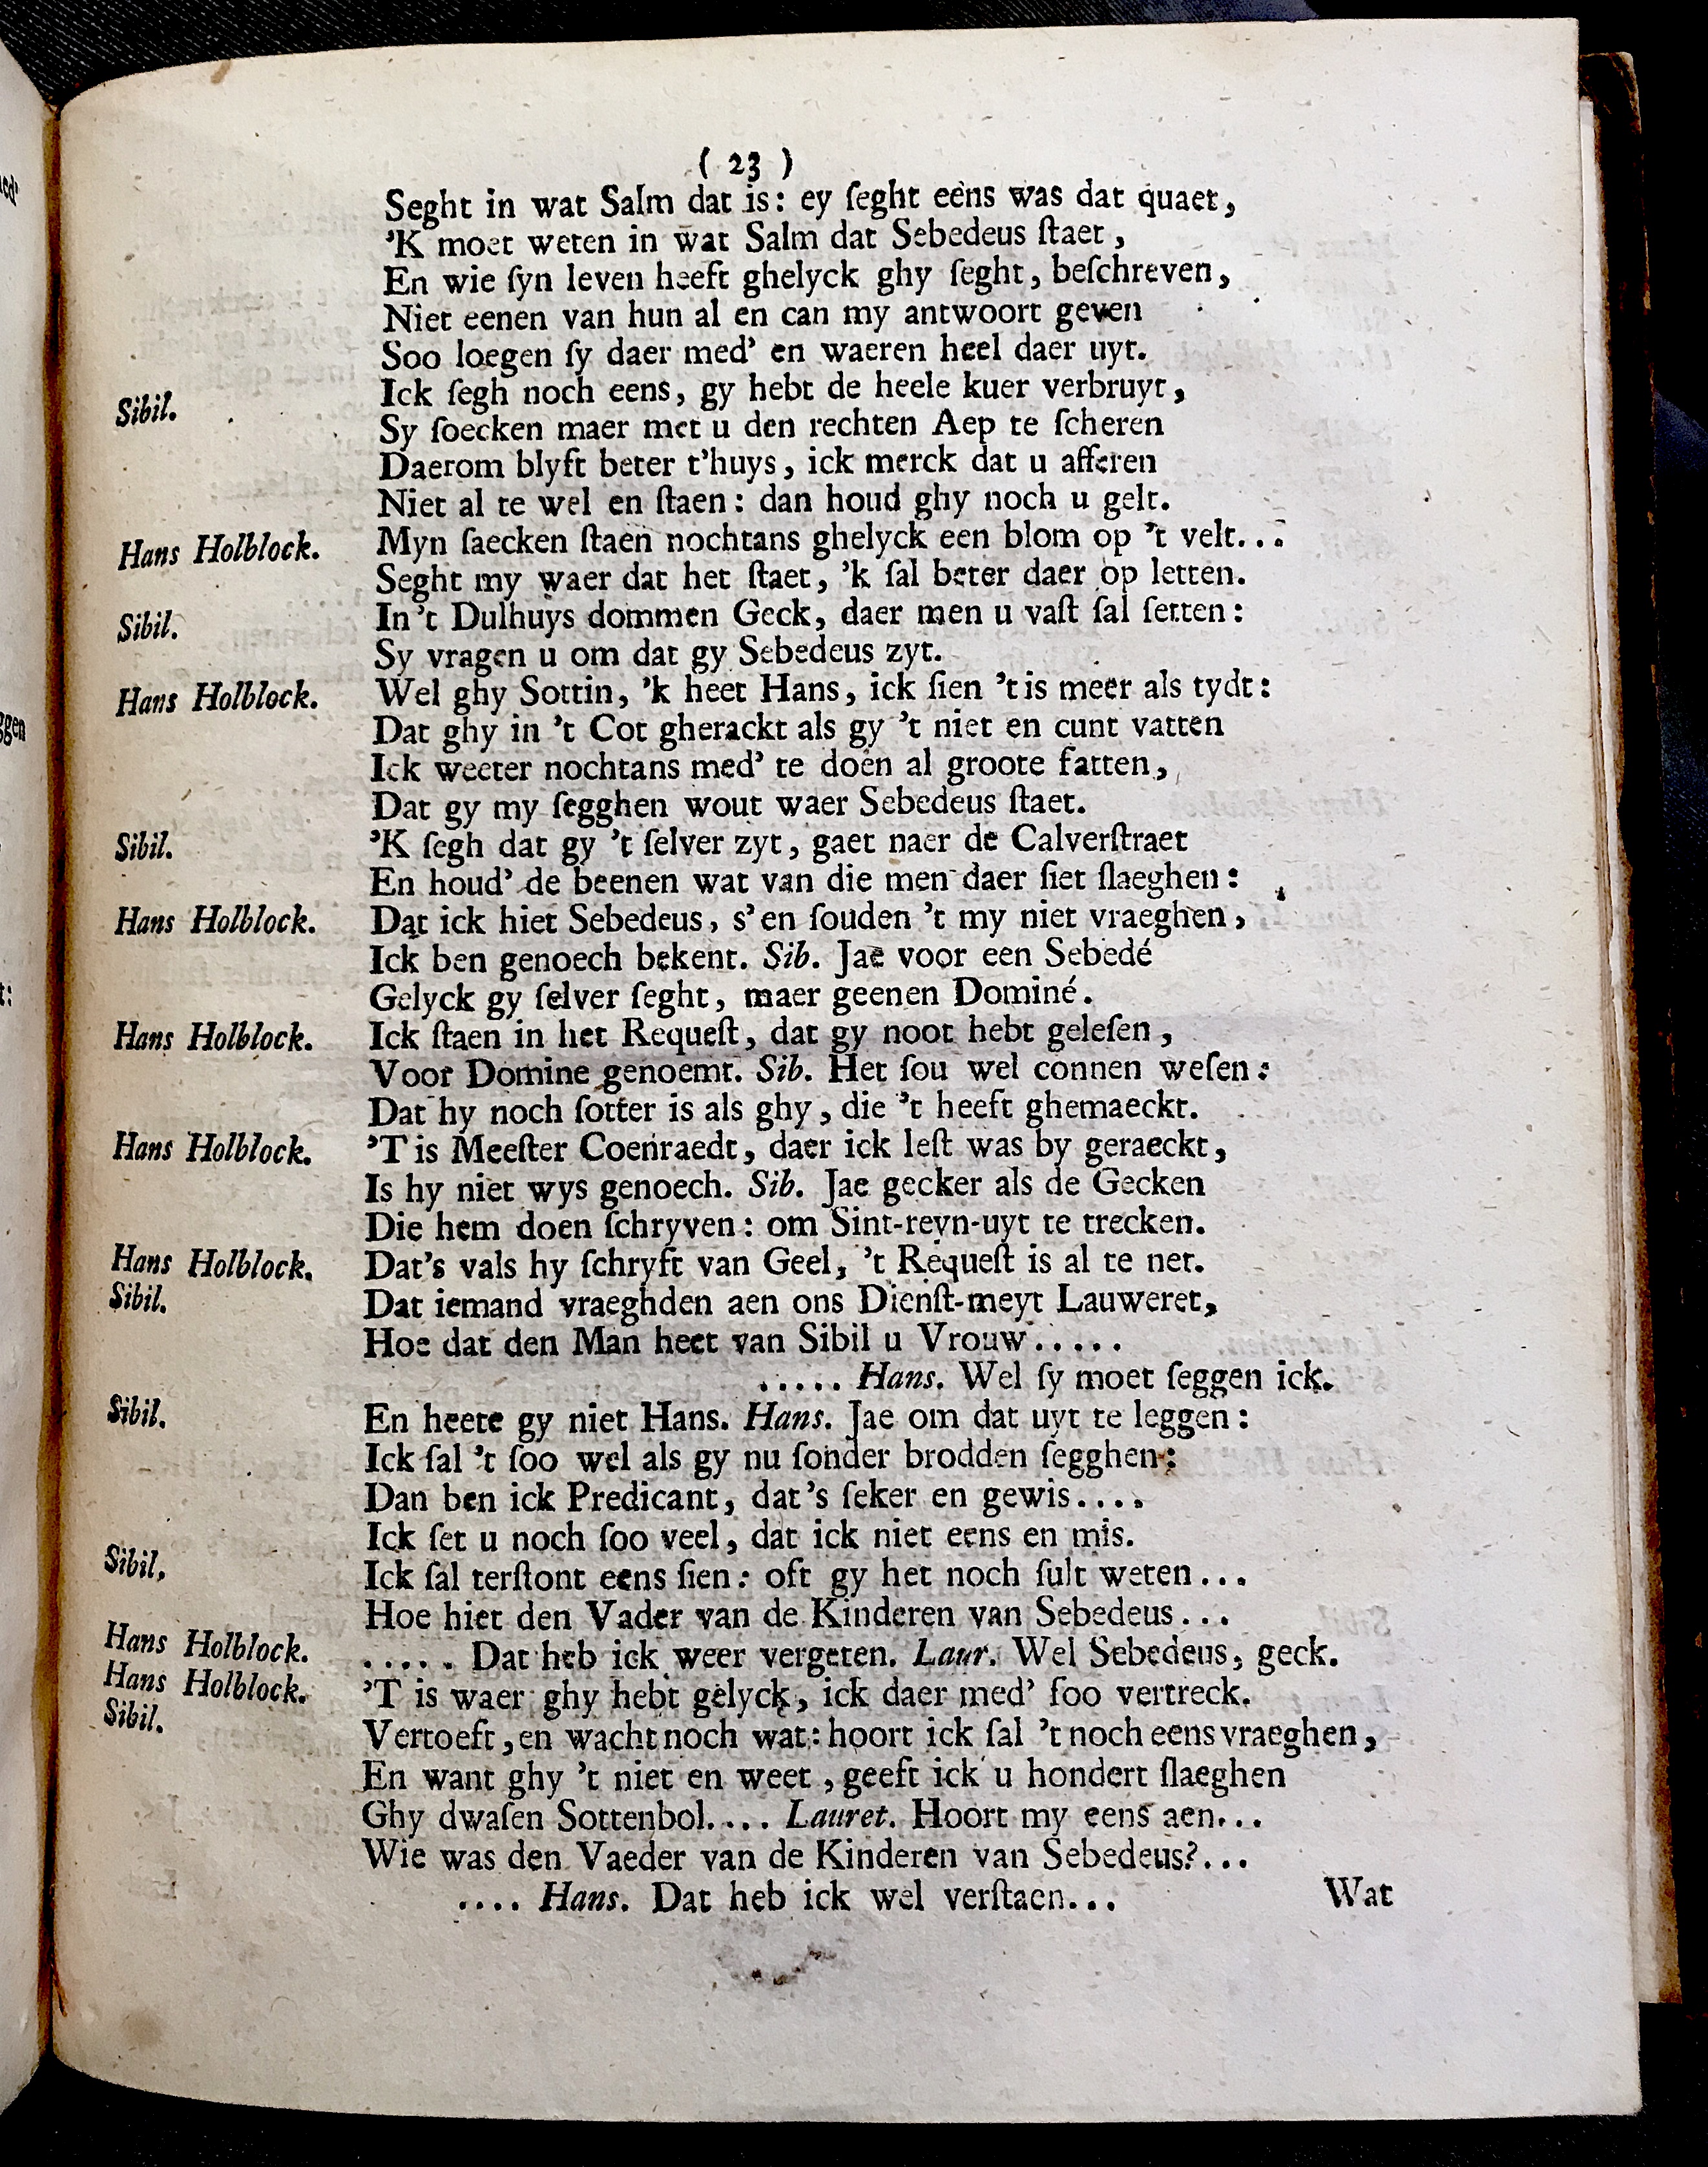 ( 23 )
Seght in wat Salm dat is: ey ſeght eens was dat quaet,
’K moet weten in wat Salm dat Sebedeus ſtaet,
En wie ſyn leven heeft ghelyck ghy ſeght, beſchreven,
Niet eenen van hun al en can my antwoort geven
Soo loegen ſy daer med’ en waeren heel daer uyt.
Sibil. Ick ſegh noch eens, gy hebt de heele kuer verbruyt,
Sy ſoecken maer met u den rechten Aep te ſcheren
Daerom blyft beter t’huys, ick merck dat u afferen
Niet al te wel en ſtaen: dan houd ghy noch u gelt.
Hans Holblock. Myn ſaecken ſtaen nochtans ghelyck een blom op ’t velt...
Seght my waer dat het ſtaet, ’k ſal beter daer op letten.
Sibil. In’t Dulhuys dommen Geck, daer men u vaſt ſal ſetten:
Sy vragen u om dat gy Sebedeus zyt.
Hans Holblock. Wel ghy Sottin, ’k heet Hans, ick ſien ’tis meer als tydt:
Dat ghy in ’t Cot gherackt als gy ’t niet en cunt vatten
Ick weeter nochtans med’ te doen al groote fatten,
Dat gy my ſegghen wout waer Sebedeus ſtaet.
Sibil. ’K ſegh dat gy ’t ſelver zyt, gaet naer de Calverſtraet
En houd’ de beenen wat van die men daer ſiet ſlaeghen:
Hans Holblock. Dat ick hiet Sebedeus, s’en ſouden ’t my niet vraeghen,
Ick ben genoech bekent. Sib. Jae voor een Sebedé
Gelyck gy ſelver ſeght, maer geenen Dominé.
Hans Holblock. Ick ſtaen in het Requeſt, dat gy noot hebt geleſen,
Voor Domine genoemt. Sib. Het ſou wel connen weſen:
Dat hy noch ſotter is als ghy, die ’t heeft ghemaeckt.
Hans Holblock. ’T is Meeſter Coenraedt, daer ick leſt was by geraeckt,
Is hy niet wys genoech. Sib. Jae gecker als de Gecken
Die hem doen ſchryven: om Sint-reyn-uyt te trecken.
Hans Holblock. Dat’s vals hy ſchryft van Geel, ’t Requeſt is al te net.
Sibil. Dat iemand vraeghden aen ons Dienſt-meyt Lauweret,
Hoe dat den Man heet van Sibil u Vrouw.....
..... Hans. Wel ſy moet ſeggen ick.
Sibil. En heete gy niet Hans. Hans. Jae om dat uyt te leggen:
Ick ſal ’t ſoo wel als gy nu ſonder brodden ſegghen:
Dan ben ick Predicant, dat’s ſeker en gewis....
Ick ſet u noch ſoo veel, dat ick niet eens en mis.
Sibil. Ick ſal terſtont eens ſien: oft gy het noch ſult weten...
Hoe hiet den Vader van de Kinderen van Sebedeus...
Hans Holblock. ..... Dat heb ick weer vergeten. Laur. Wel Sebedeus, geck.
Hans Holblock. ’T is waer ghy hebt gelyck, ick daer med’ ſoo vertreck.
Sibil. Vertoeft, en wacht noch wat: hoort ick ſal ’t noch eens vraeghen,
En want ghy ’t niet en weet, geeft ick u hondert ſlaeghen
Ghy dwaſen Sottenbol.... Lauret. Hoort my eens aen...
Wie was den Vaeder van de Kinderen van Sebedeus?...
.... Hans. Dat heb ick wel verſtaen...
Wat